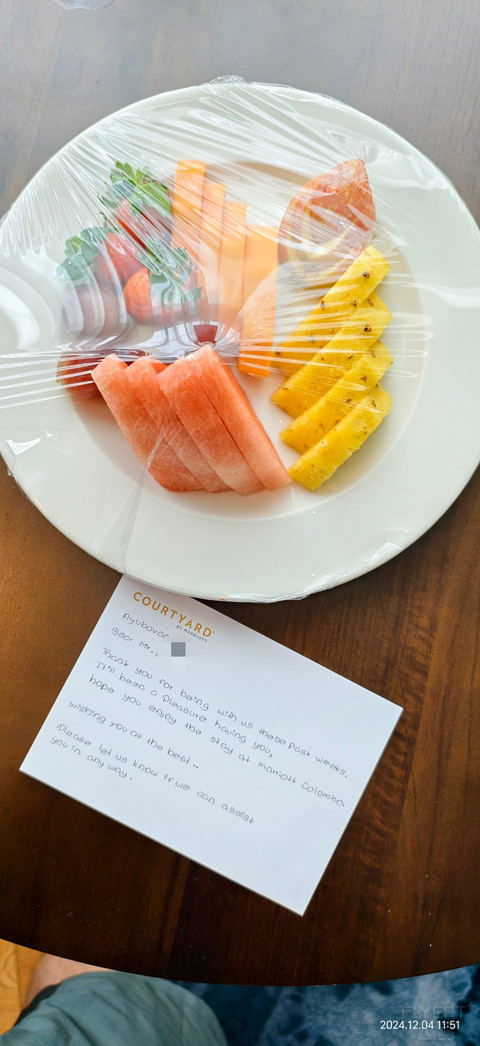 COURTYARD
BY MARRIOTT
Ayubovan
Dear Mr.,
Thank you for being with us these past weeks.
It's been a pleasure having you,
hope you enjoy the stay at Marriott Colombo.
wishing you all the best..
Please let us know if we can assist
you in any way.
FLYERT
2024.12.04 11:51